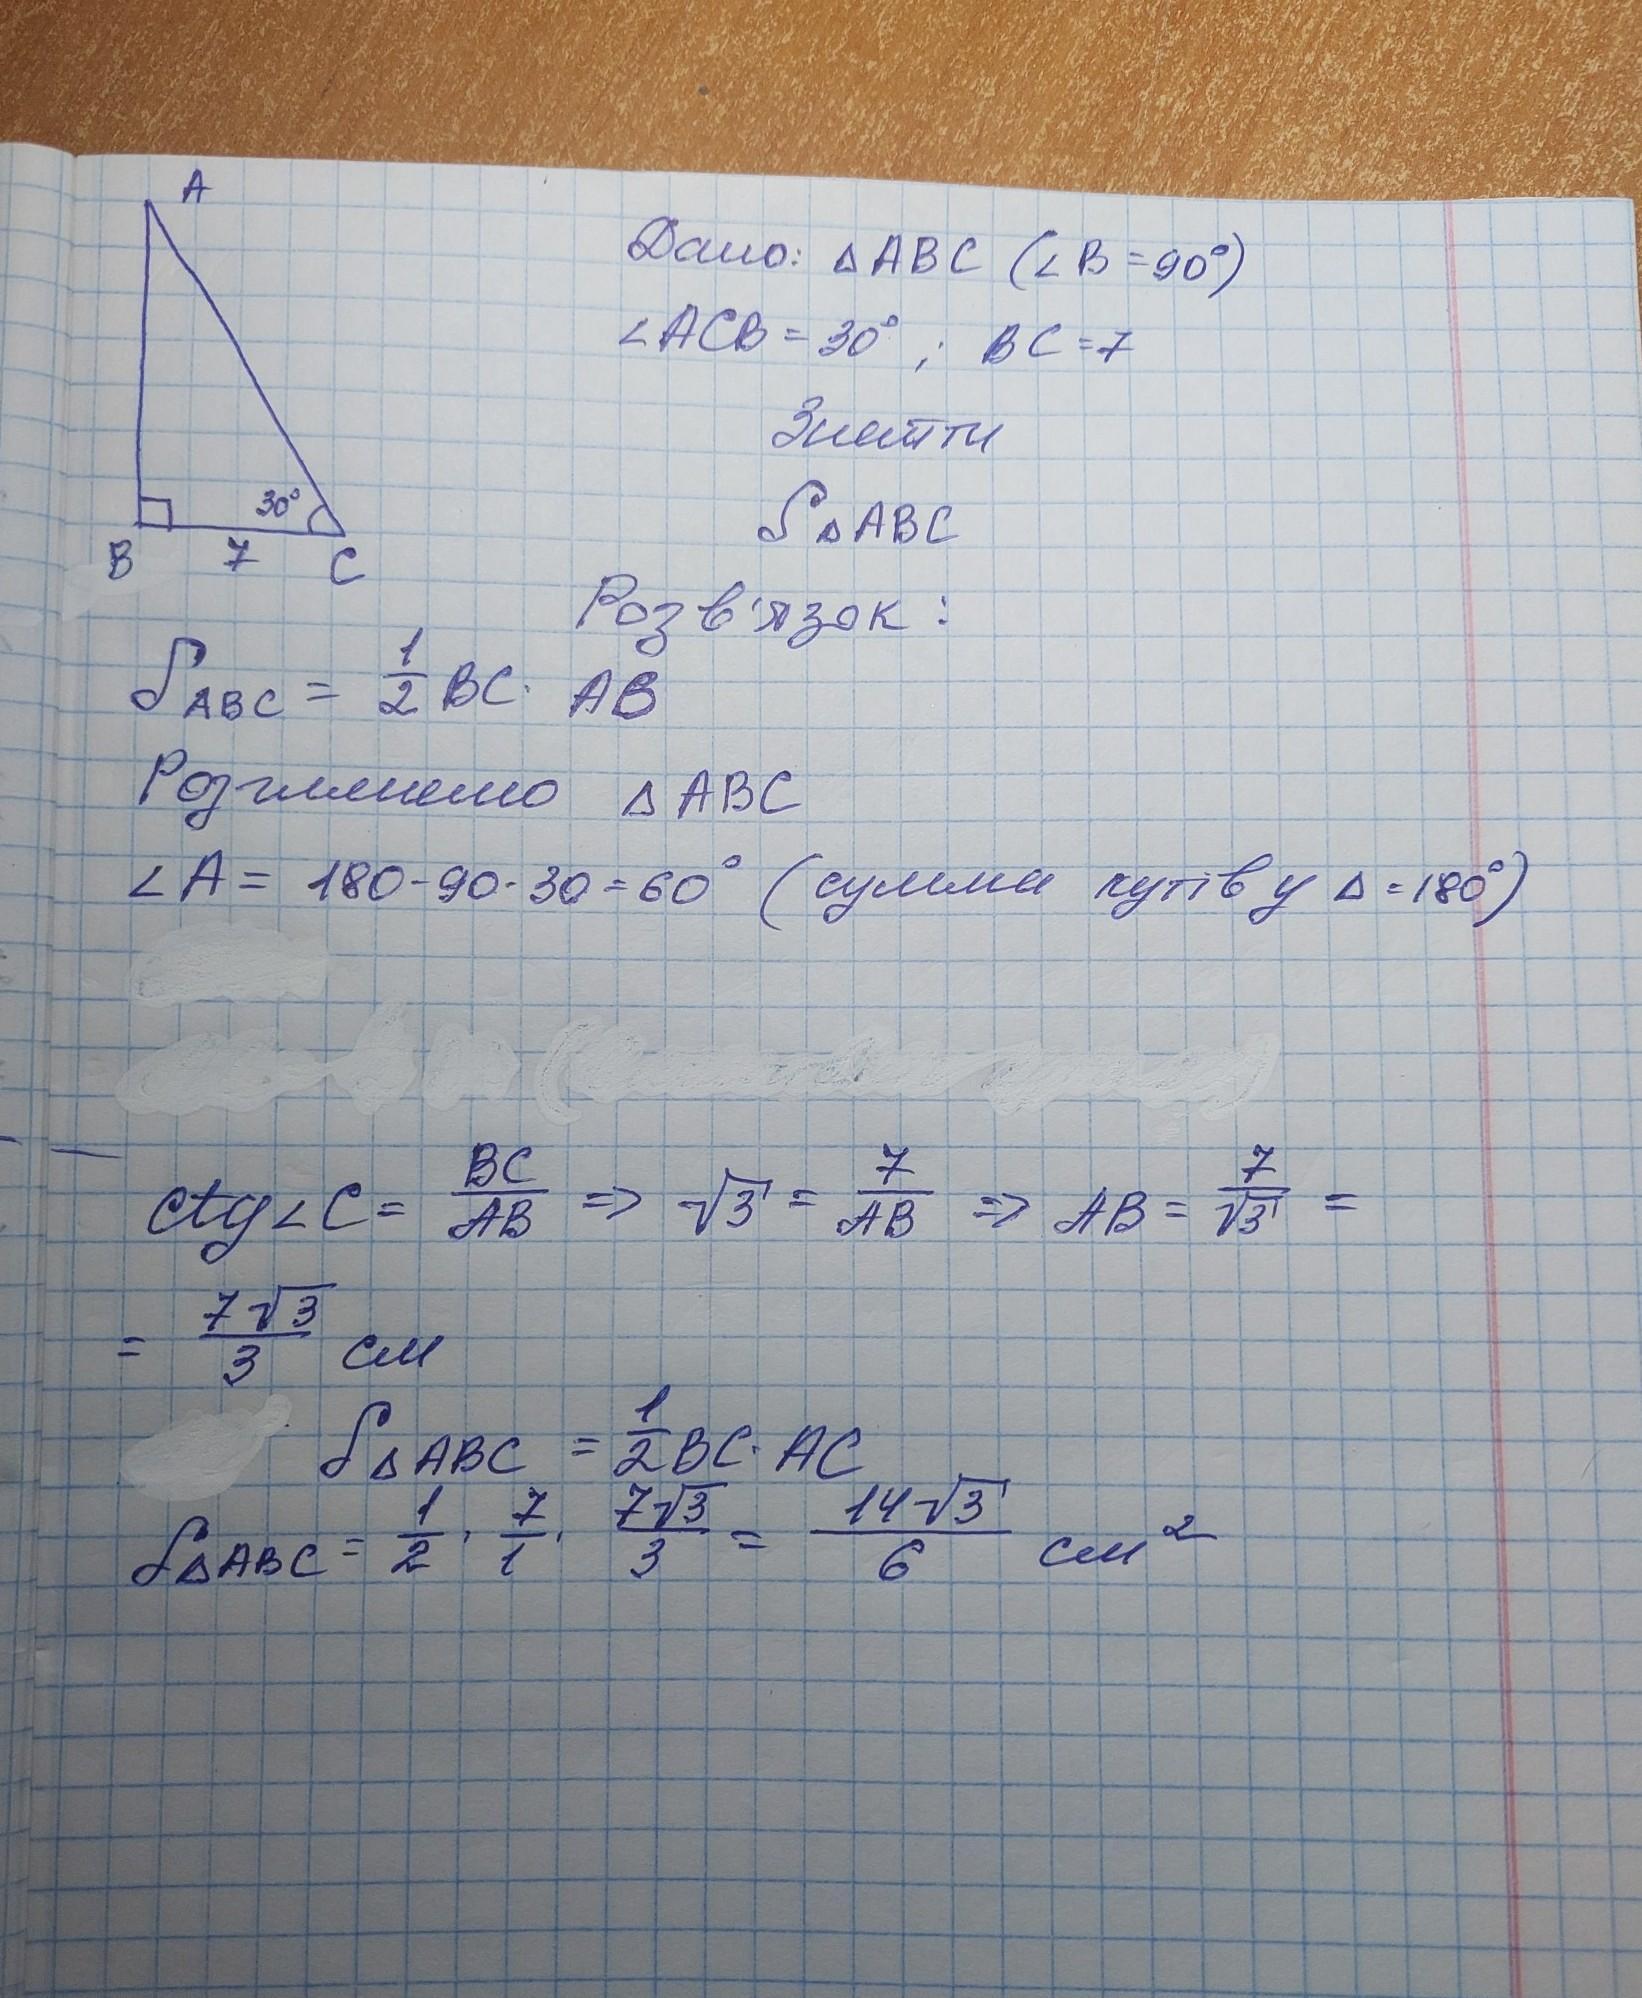 A
Дано: △ABC (∠B=90°)
∠ACB=30° ; BC=7
Знайти
S△ABC
30°
B 7 C
Розв'язок:
S ABC = 1/2 BC · AB
Розглянемо △ABC
∠A = 180-90-30=60° (сумма кутів у △=180°)
ctg∠C = BC/AB => √3 = 7/AB => AB = 7/√3 =
= 7√3/3 см
S△ABC = 1/2 BC · AC
S△ABC = 1/2 · 7/1 · 7√3/3 = 14√3/6 см²